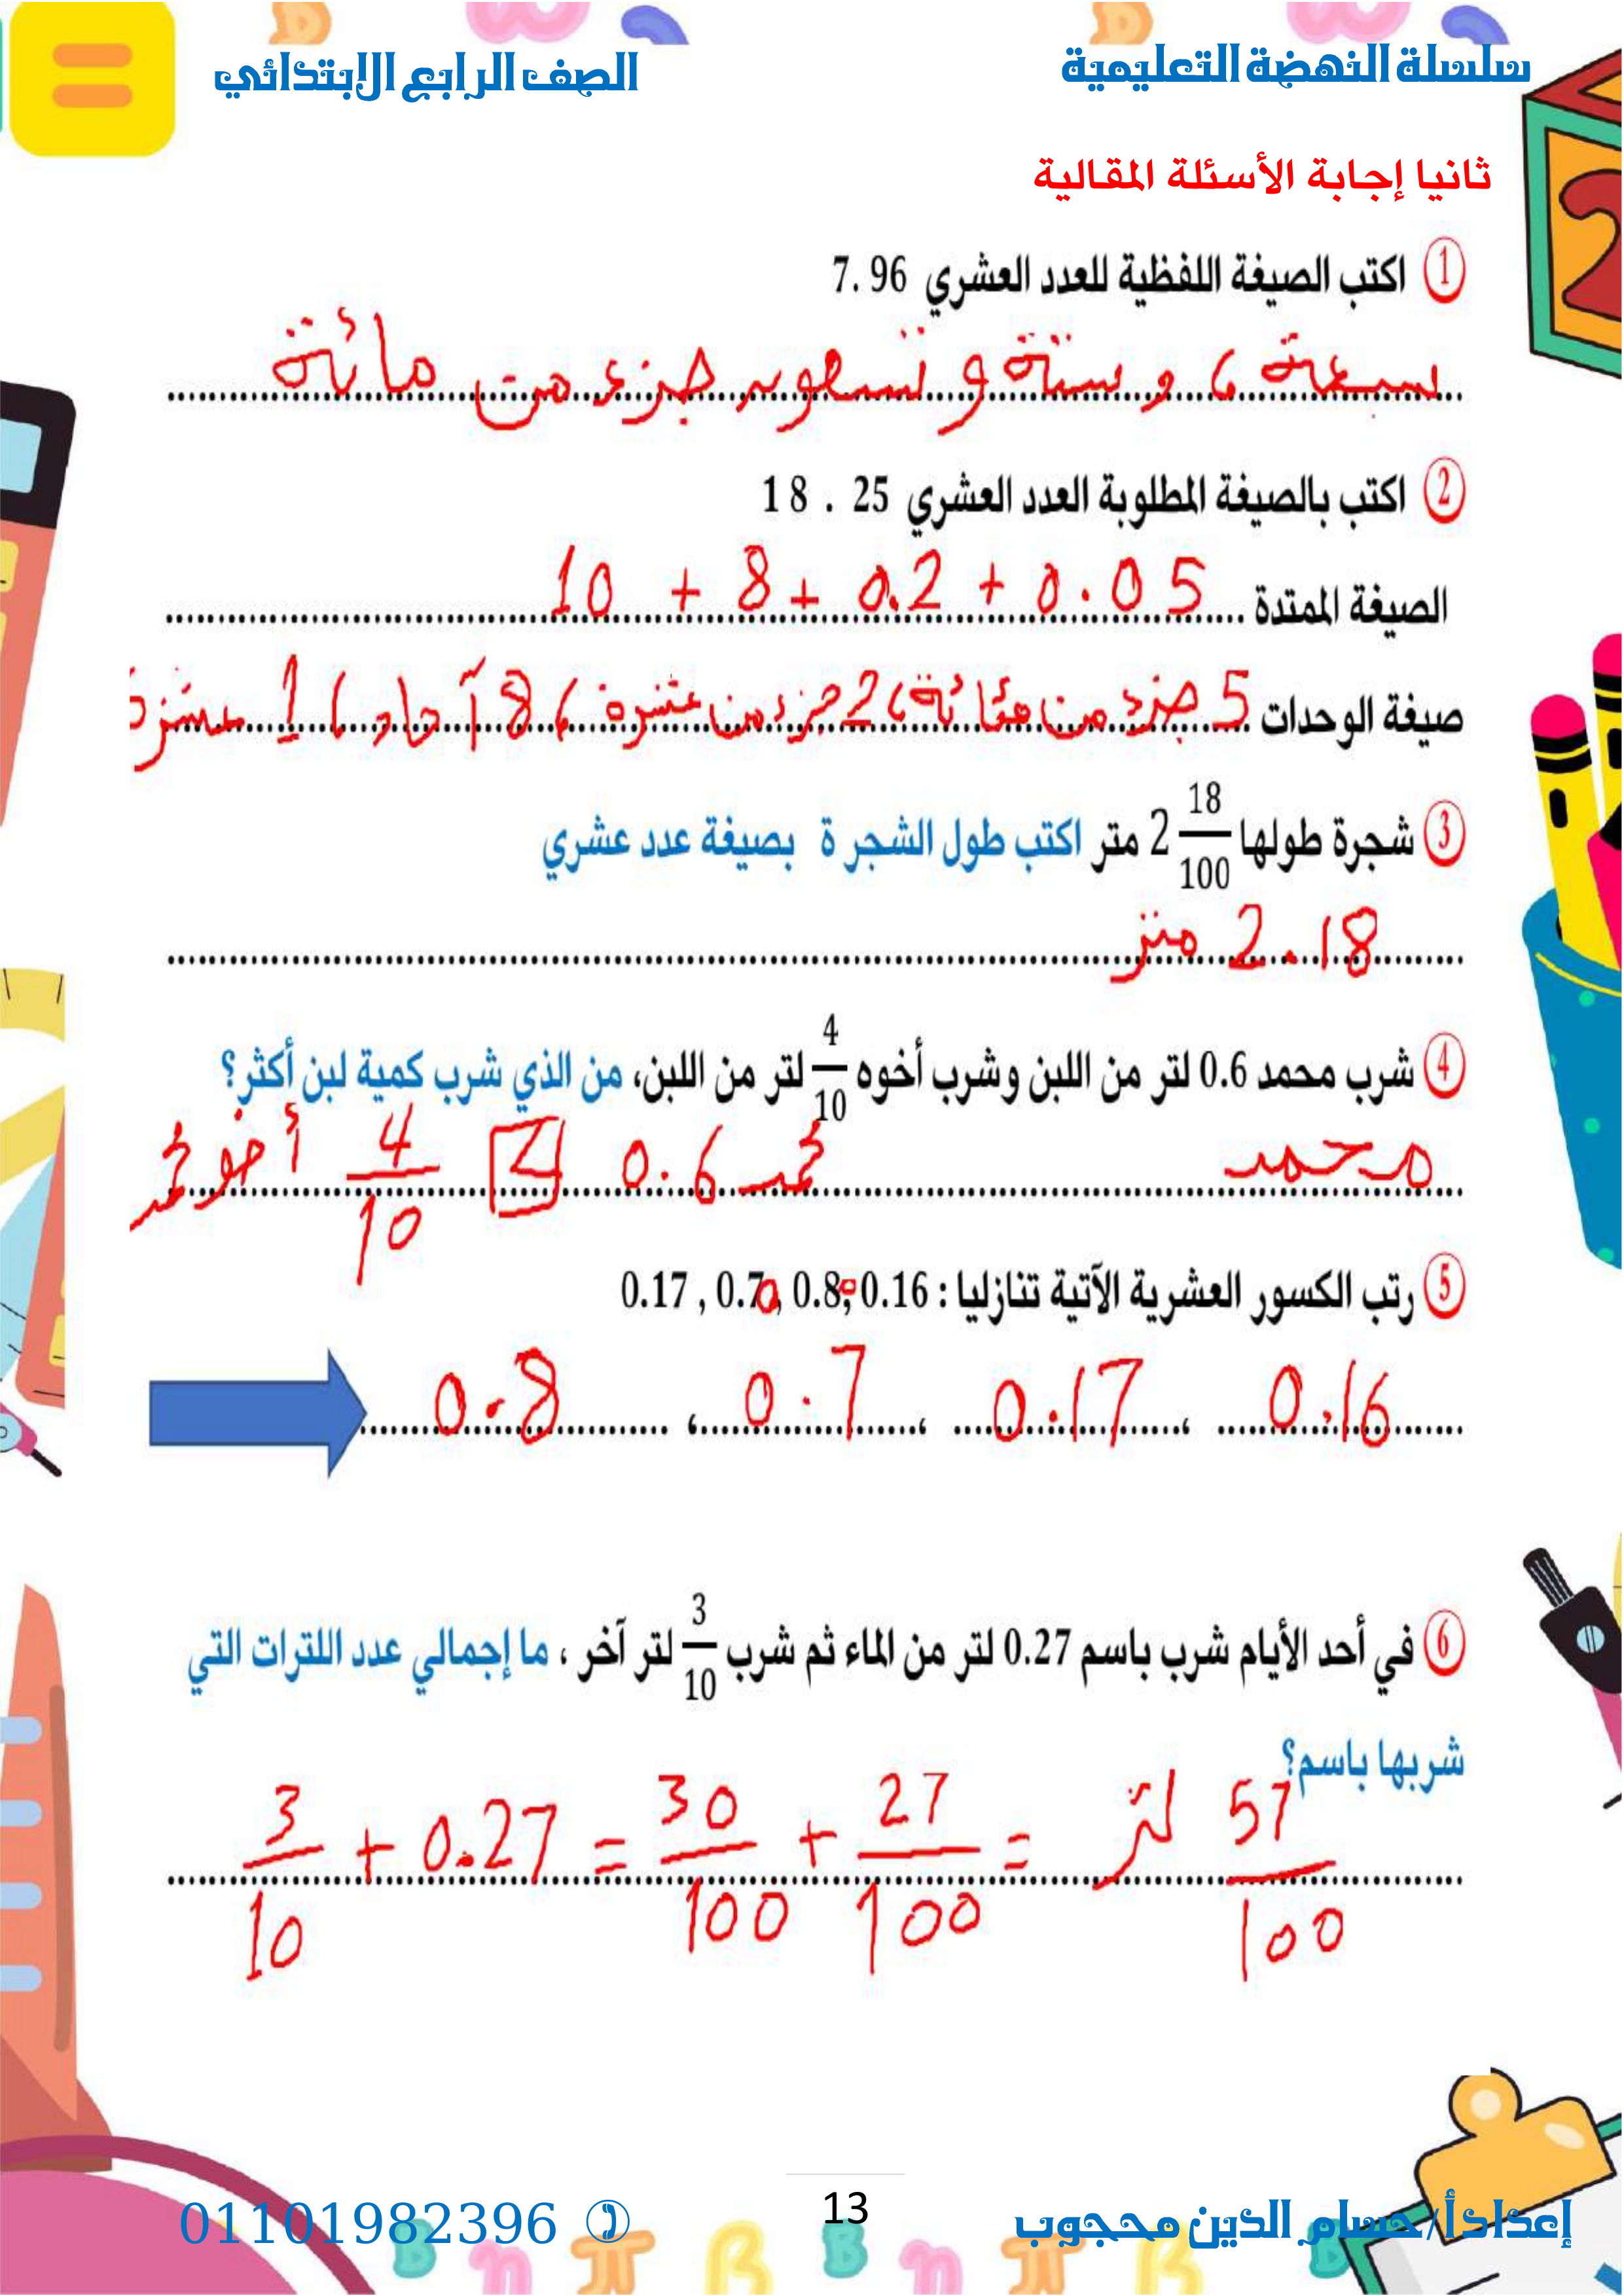 سلسلة النهضة التعليمية
الصف الرابع الابتدائي
ثانيا إجابة الأسئلة المقالية
1 اكتب الصيغة اللفظية للعدد العشري 7.96
سبعة ، و ستة و تسعون جزء من مائة
2 اكتب بالصيغة المطلوبة العدد العشري 18 . 25
الصيغة الممتدة 10 + 8 + 0.2 + 0.05
صيغة الوحدات 5 جزء من مائة ، 2 جزء من عشرة ، 8 آحاد ، 1 عشرة
3 شجرة طولها 2 18/100 متر اكتب طول الشجر ة بصيغة عدد عشري
2.18 متر
4 شرب محمد 0.6 لتر من اللبن وشرب أخوه 4/10 لتر من اللبن، من الذي شرب كمية لبن أكثر؟
محمد محمد 0.6 4/10 أخو محمد
5 رتب الكسور العشرية الآتية تنازليا : 0.16 , 0.80 , 0.70 , 0.17
0.8 ، 0.7 ، 0.17 ، 0.16
6 في أحد الأيام شرب باسم 0.27 لتر من الماء ثم شرب 3/10 لتر آخر ، ما إجمالي عدد اللترات التي
شربها باسم؟
3/10 + 0.27 = 30/100 + 27/100 = 57/100 لتر
إعداد أ/ حسام الدين محجوب
13
01101982396